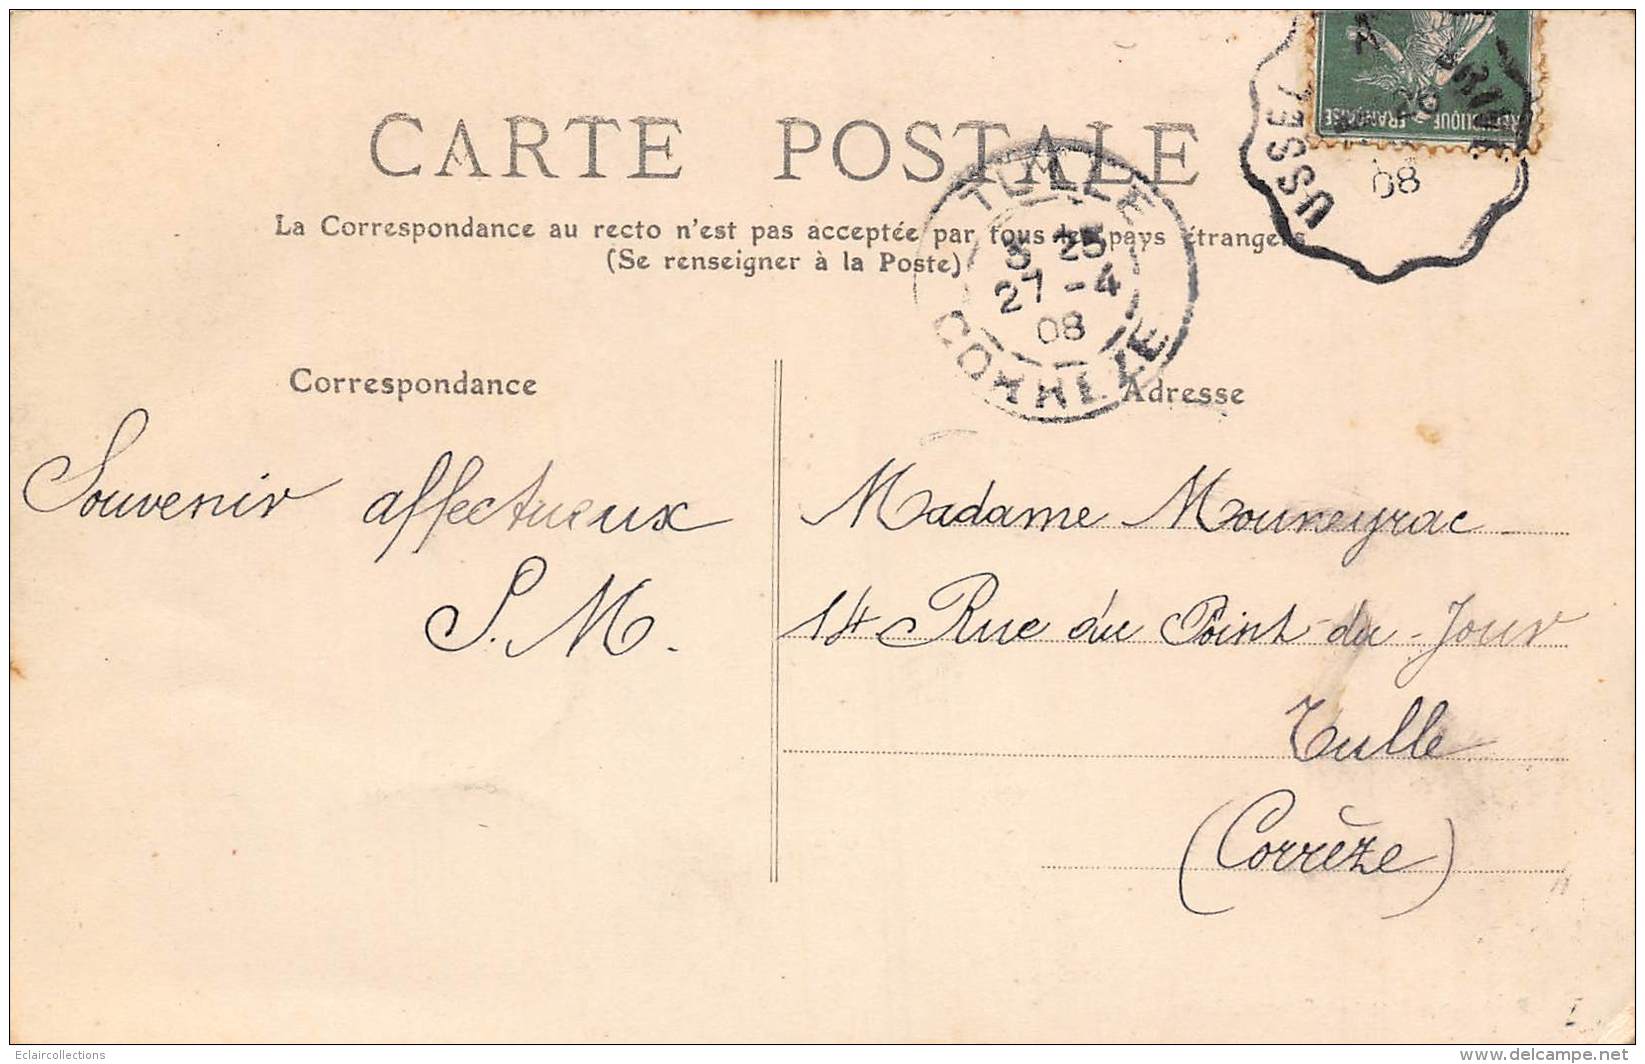 CARTE POSTALE
La Correspondance au recto n'est pas acceptée par tous les pays étrangers
(Se renseigner à la Poste)
TULLE
3 25
27 - 4
08
CORREZE
USSEL A
08
REPUBLIQUE FRANÇAISE
Correspondance
Souvenir affectueux
S. M.
Adresse
Madame Moureyrac
14 Rue du Point-du-Jour
Tulle
(Corrèze)
Eclaircollections
www.delcampe.net